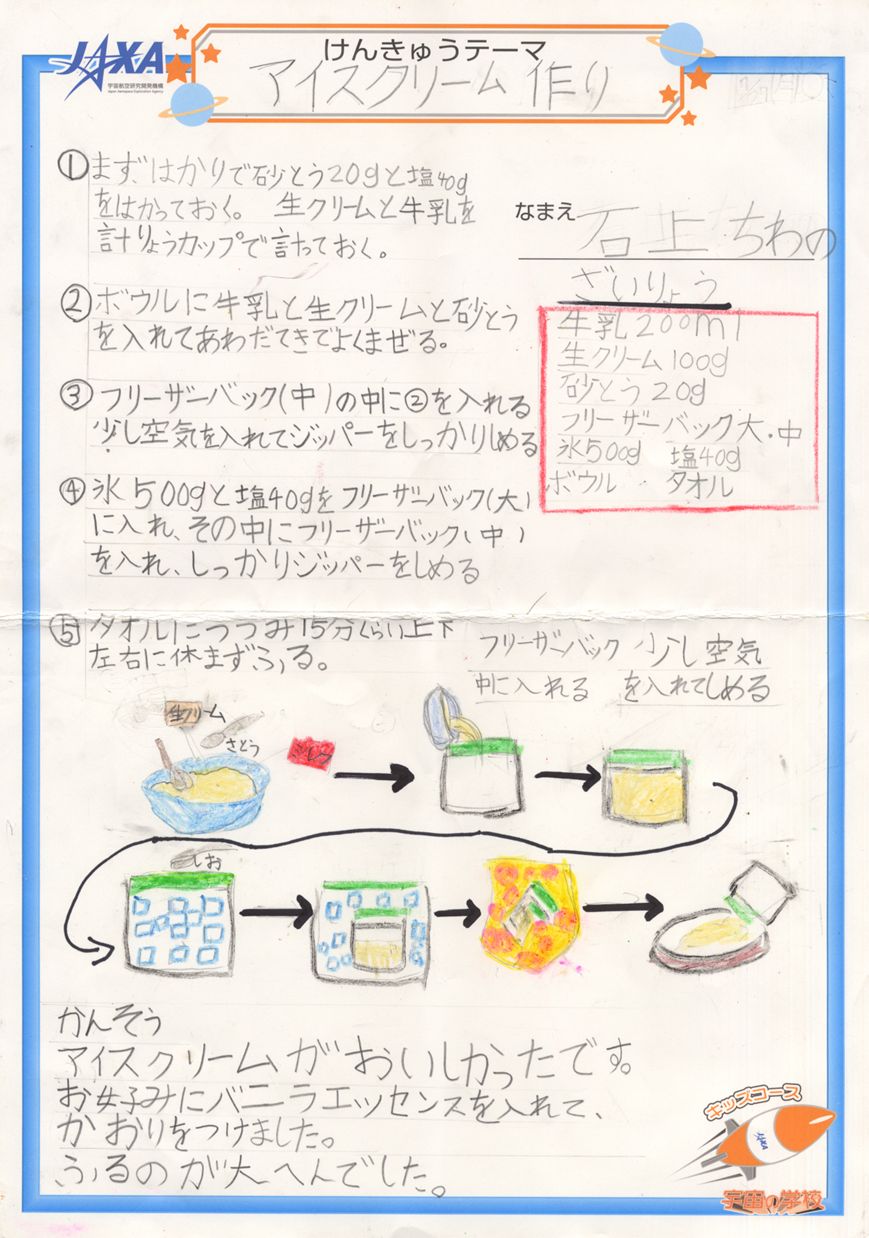 JAXA
宇宙航空研究開発機構
Japan Aerospace Exploration Agency
けんきゅうテーマ
アイスクリーム作り
①まず、はかりで砂とう20gと塩40g
をはかっておく。生クリームと牛乳を
計りょうカップで計っておく。
なまえ 石上ちわの
②ボウルに牛乳と生クリームと砂とう
を入れてあわだてきでよくまぜる。
③フリーザーバック(中)の中に②を入れる
少し空気を入れてジッパーをしっかりしめる
④氷500gと塩40gをフリーザーバック(大)
に入れ、その中にフリーザーバック(中)
を入れ、しっかりジッパーをしめる
ざいりょう
牛乳200ml
生クリーム100g
砂とう20g
フリーザーバック大・中
氷500g 塩40g
ボウル タオル
⑤タオルにつつみ15分くらい上下
左右に休まずふる。
フリーザーバック
中に入れる
少し空気
を入れてしめる
生クリーム
さとう
ミルク
しお
かんそう
アイスクリームがおいしかったです。
お好みにバニラエッセンスを入れて、
かおりをつけました。
ふるのが大へんでした。
キッズコース
JAXA
宇宙の学校